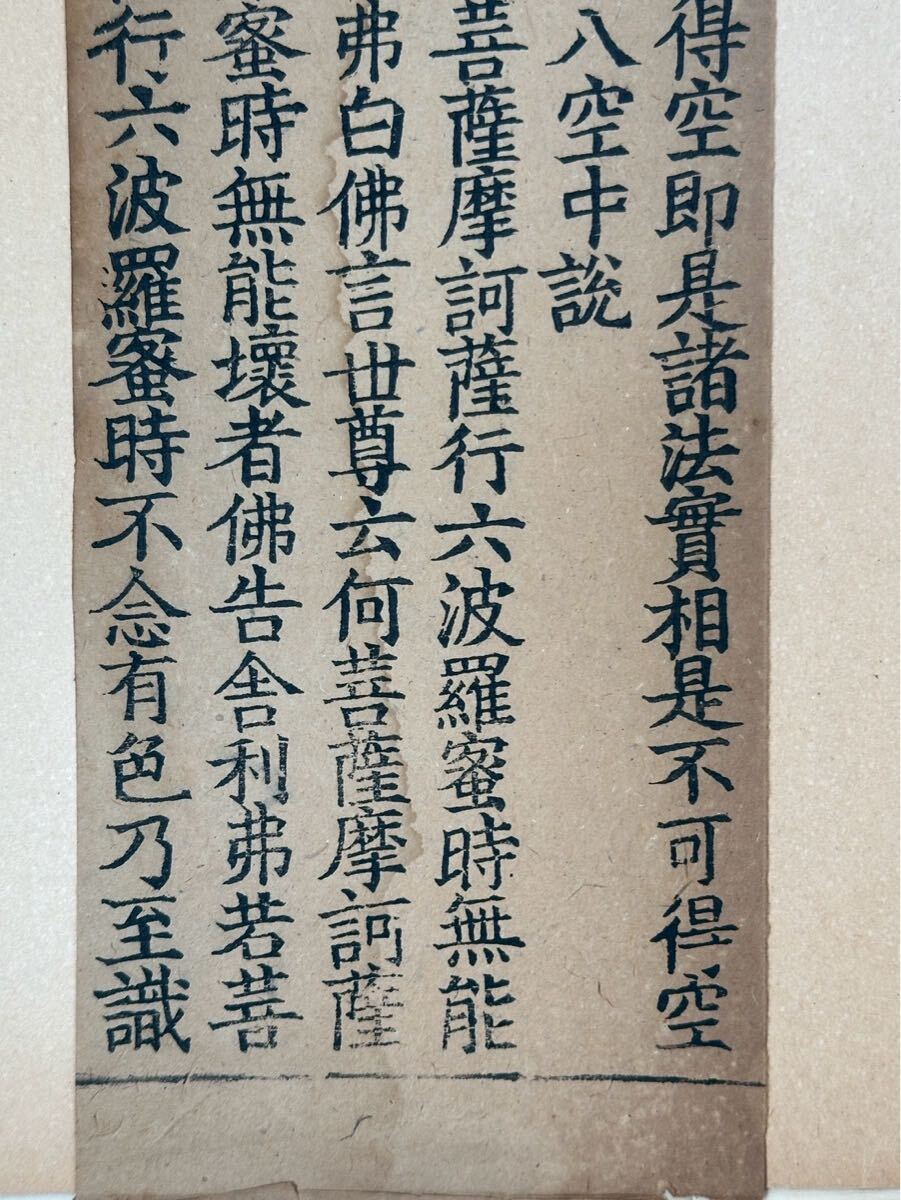 得空即是諸法實相是不可得空
八空中說
菩薩摩訶薩行六波羅蜜時無能
弗白佛言世尊云何菩薩摩訶薩
蜜時無能壞者佛告舍利弗若菩
行六波羅蜜時不念有色乃至識